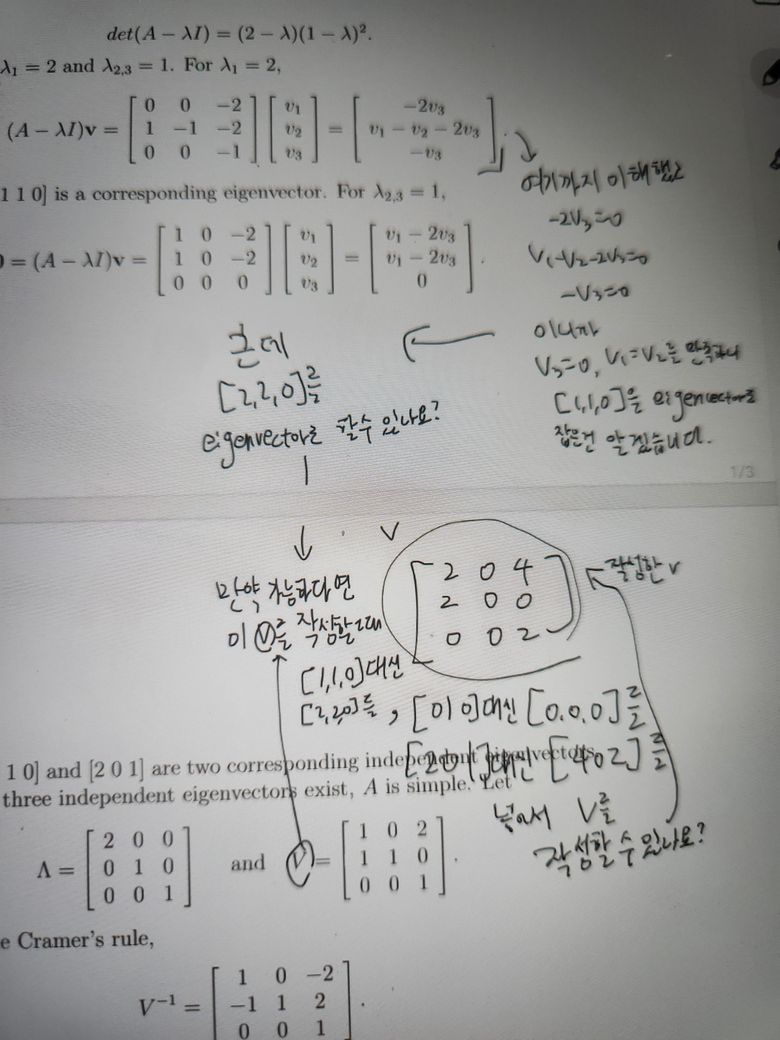 det(A − λI) = (2 − λ)(1 − λ)².
λ₁ = 2 and λ₂,₃ = 1. For λ₁ = 2,
(A − λI)v = [0 0 −2; 1 −1 −2; 0 0 −1] [v₁; v₂; v₃] = [−2v₃; v₁ − v₂ − 2v₃; −v₃].
1 1 0] is a corresponding eigenvector. For λ₂,₃ = 1,
0 = (A − λI)v = [1 0 −2; 1 0 −2; 0 0 0] [v₁; v₂; v₃] = [v₁ − 2v₃; v₁ − 2v₃; 0].
여기까지 이해했고
-2V₃=0
V₁-V₂-2V₃=0
-V₃=0
이니까
V₃=0, V₁=V₂를 만족하니
[1,1,0]을 eigenvector로
잡은건 알겠습니다.
근데
[2,2,0]를
eigenvector로 할수 있나요?
1/3
만약 가능하다면
이 V를 작성할때
[1,1,0]대신
[2,2,0]를, [0 1 0]대신 [0,0,0]를
[2 0 1]대신 [4 0 2]를
넣어서 V를
작성할 수 있나요?
V
[2 0 4; 2 0 0; 0 0 2]
작성한 V
1 0] and [2 0 1] are two corresponding independent eigenvectors.
three independent eigenvectors exist, A is simple. Let
Λ = [2 0 0; 0 1 0; 0 0 1] and V = [1 0 2; 1 1 0; 0 0 1].
e Cramer's rule,
V⁻¹ = [1 0 −2; −1 1 2; 0 0 1].